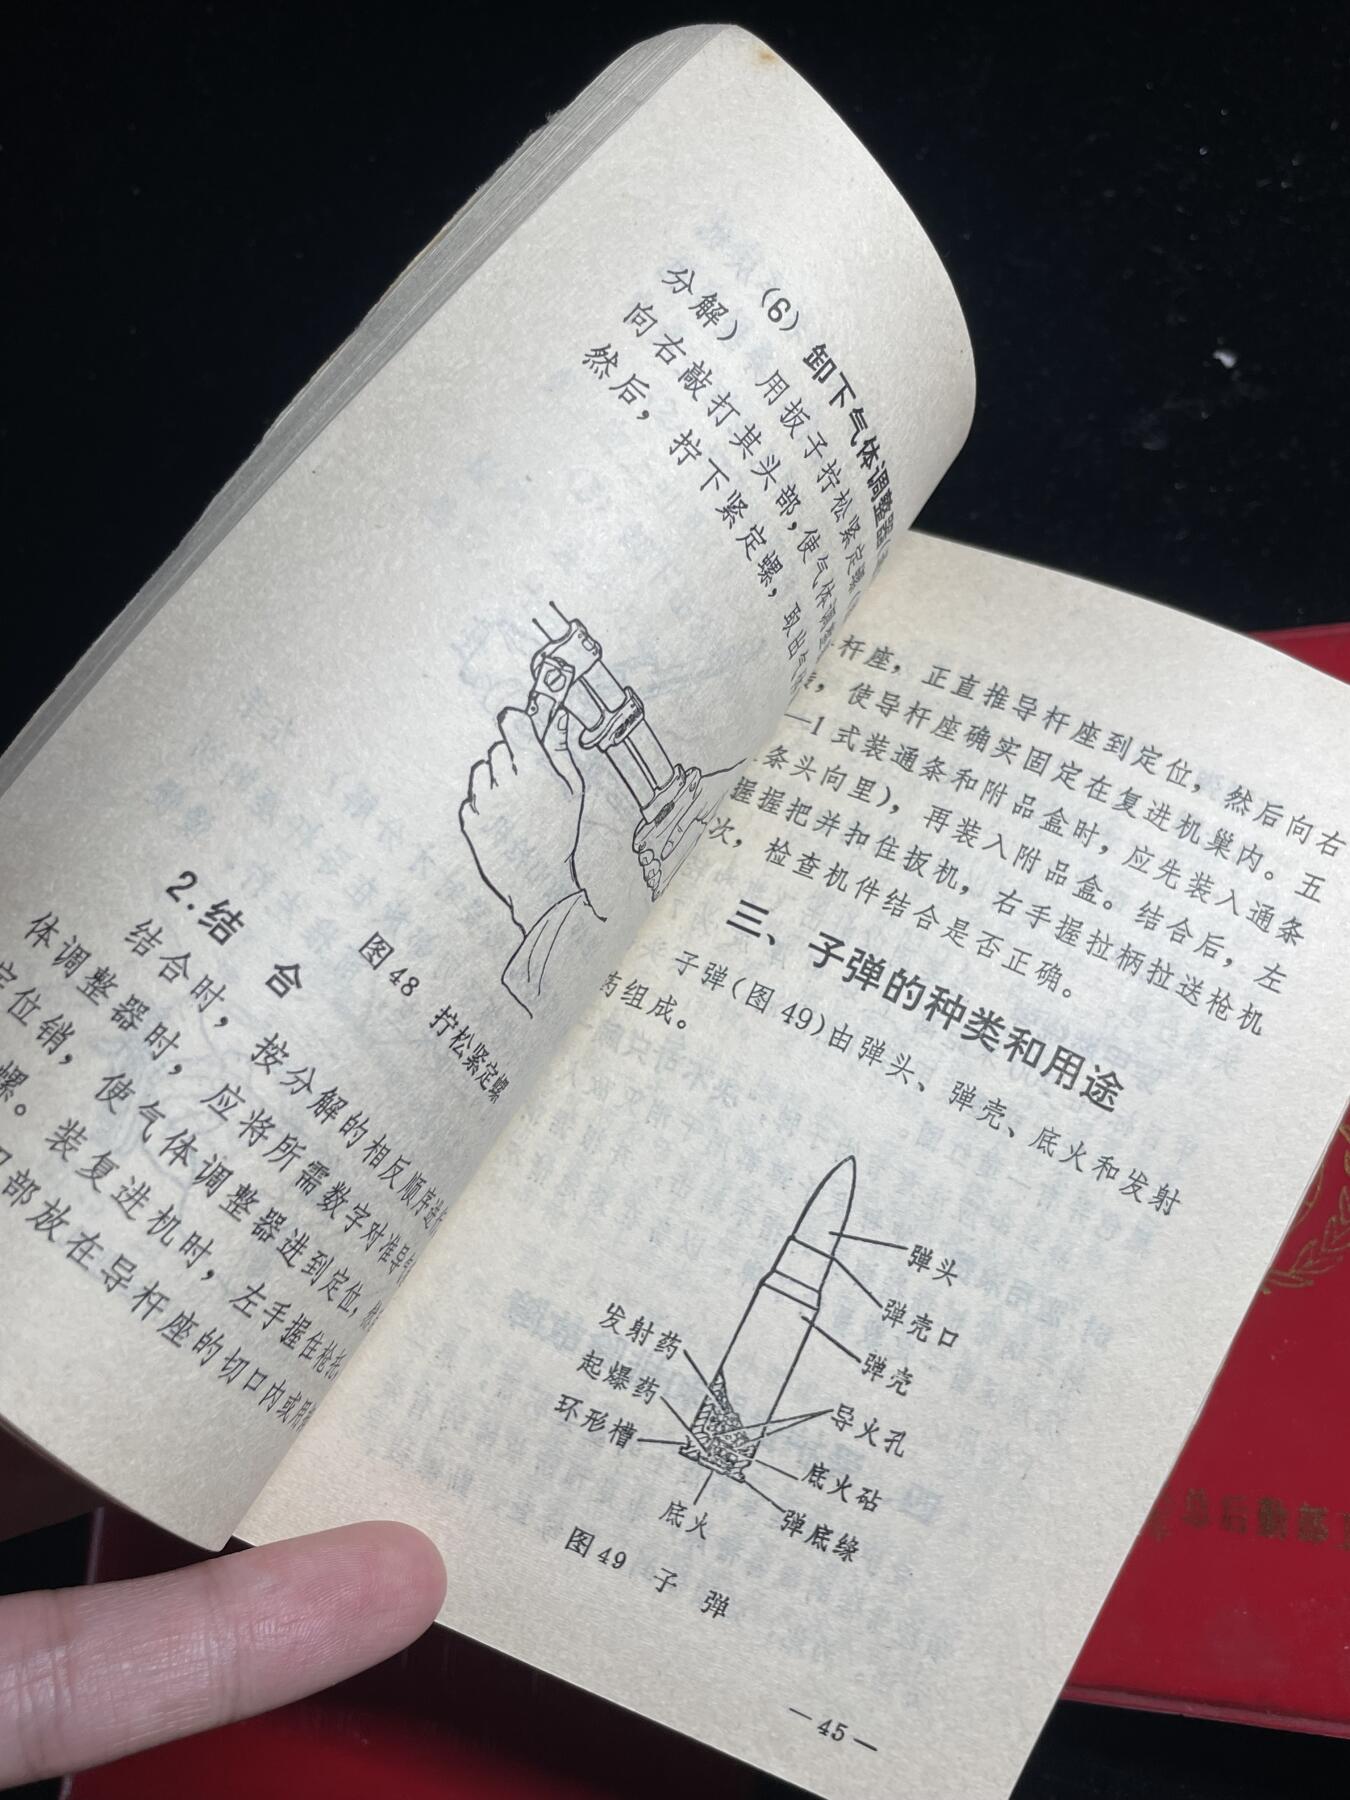 (6) 卸下气体调整器
分解) 用扳子拧松紧定螺
向右敲打其头部，使气体调整
然后，拧下紧定螺，取出气
图48 拧松紧定螺
2.结 合
结合时，按分解的相反顺序进行
体调整器时，应将所需数字对准导气
定位销，使气体调整器进到定位，
螺。装复进机时，左手握住枪托
部放在导杆座的切口内或用
杆座，正直推导杆座到定位，然后向右
，使导杆座确实固定在复进机巢内。五
—1式装通条和附品盒时，应先装入通条
条头向里)，再装入附品盒。结合后，左
握握把并扣住扳机，右手握拉柄拉送枪机
次，检查机件结合是否正确。
三、子弹的种类和用途
子弹(图49)由弹头、弹壳、底火和发射
药组成。
弹头
弹壳口
弹壳
发射药
起爆药
环形槽
导火孔
底火砧
弹底缘
底火
图49 子 弹
—45—